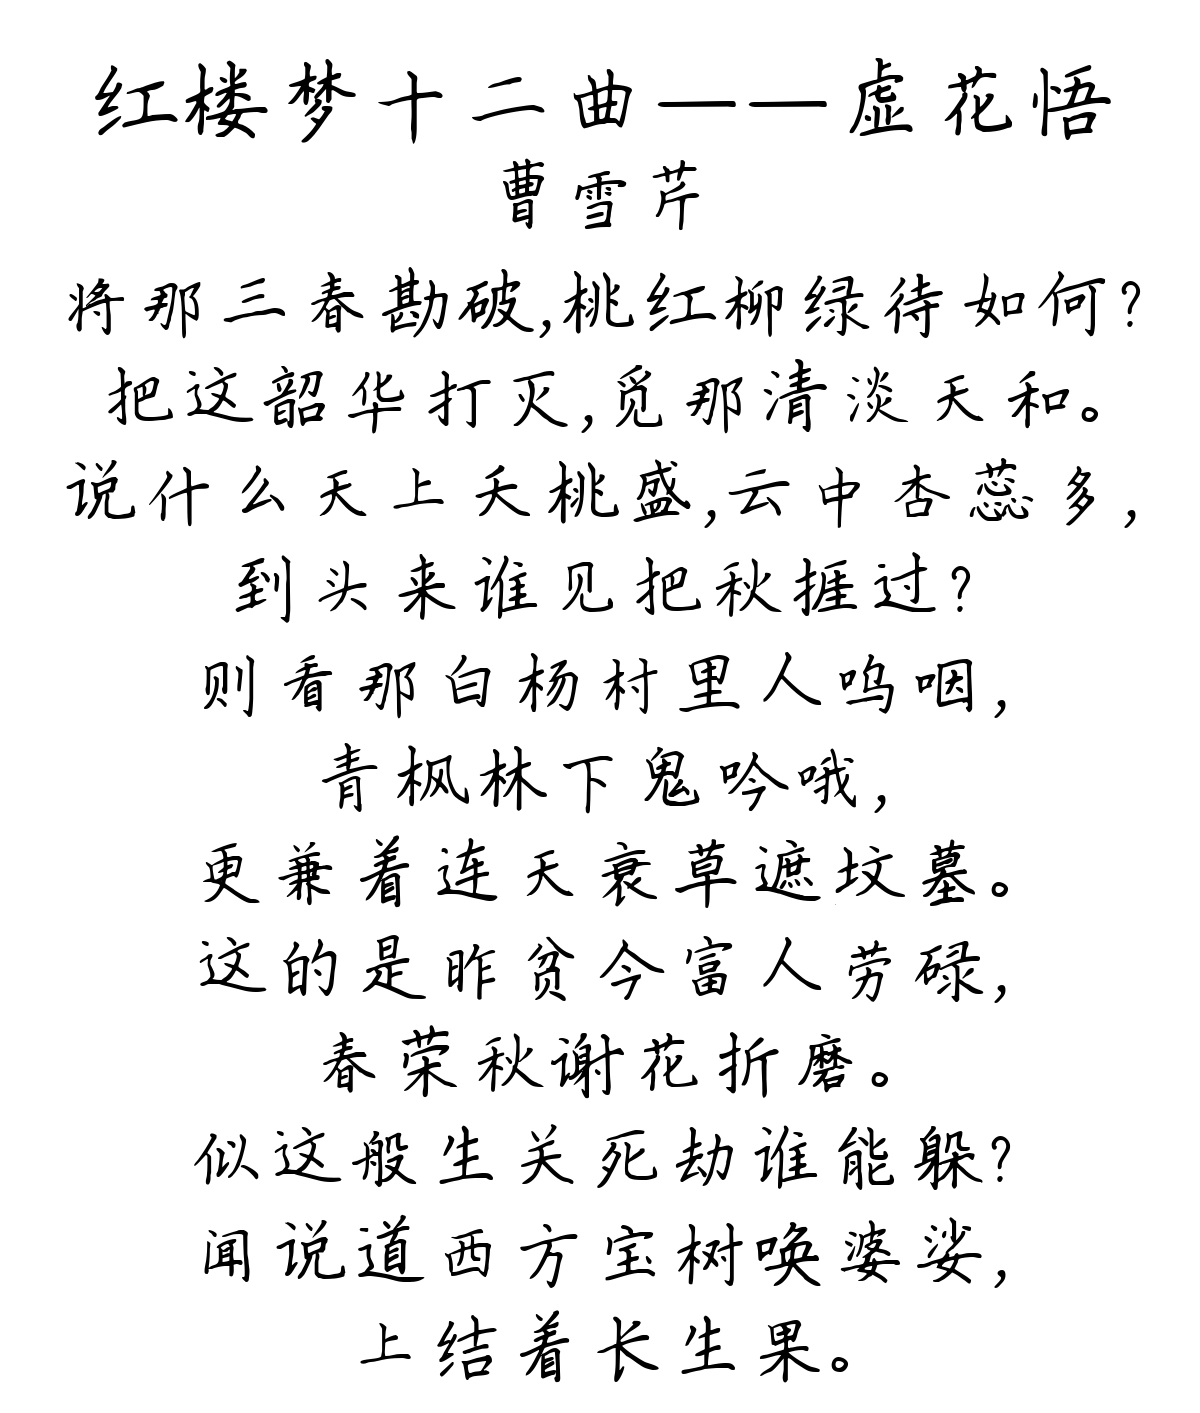 红楼梦十二曲——虚花悟
曹雪芹
将那三春勘破,桃红柳绿待如何?
把这韶华打灭,觅那清淡天和。
说什么天上夭桃盛,云中杏蕊多,
到头来谁见把秋捱过?
则看那白杨村里人呜咽,
青枫林下鬼吟哦,
更兼着连天衰草遮坟墓。
这的是昨贫今富人劳碌,
春荣秋谢花折磨。
似这般生关死劫谁能躲?
闻说道西方宝树唤婆娑,
上结着长生果。